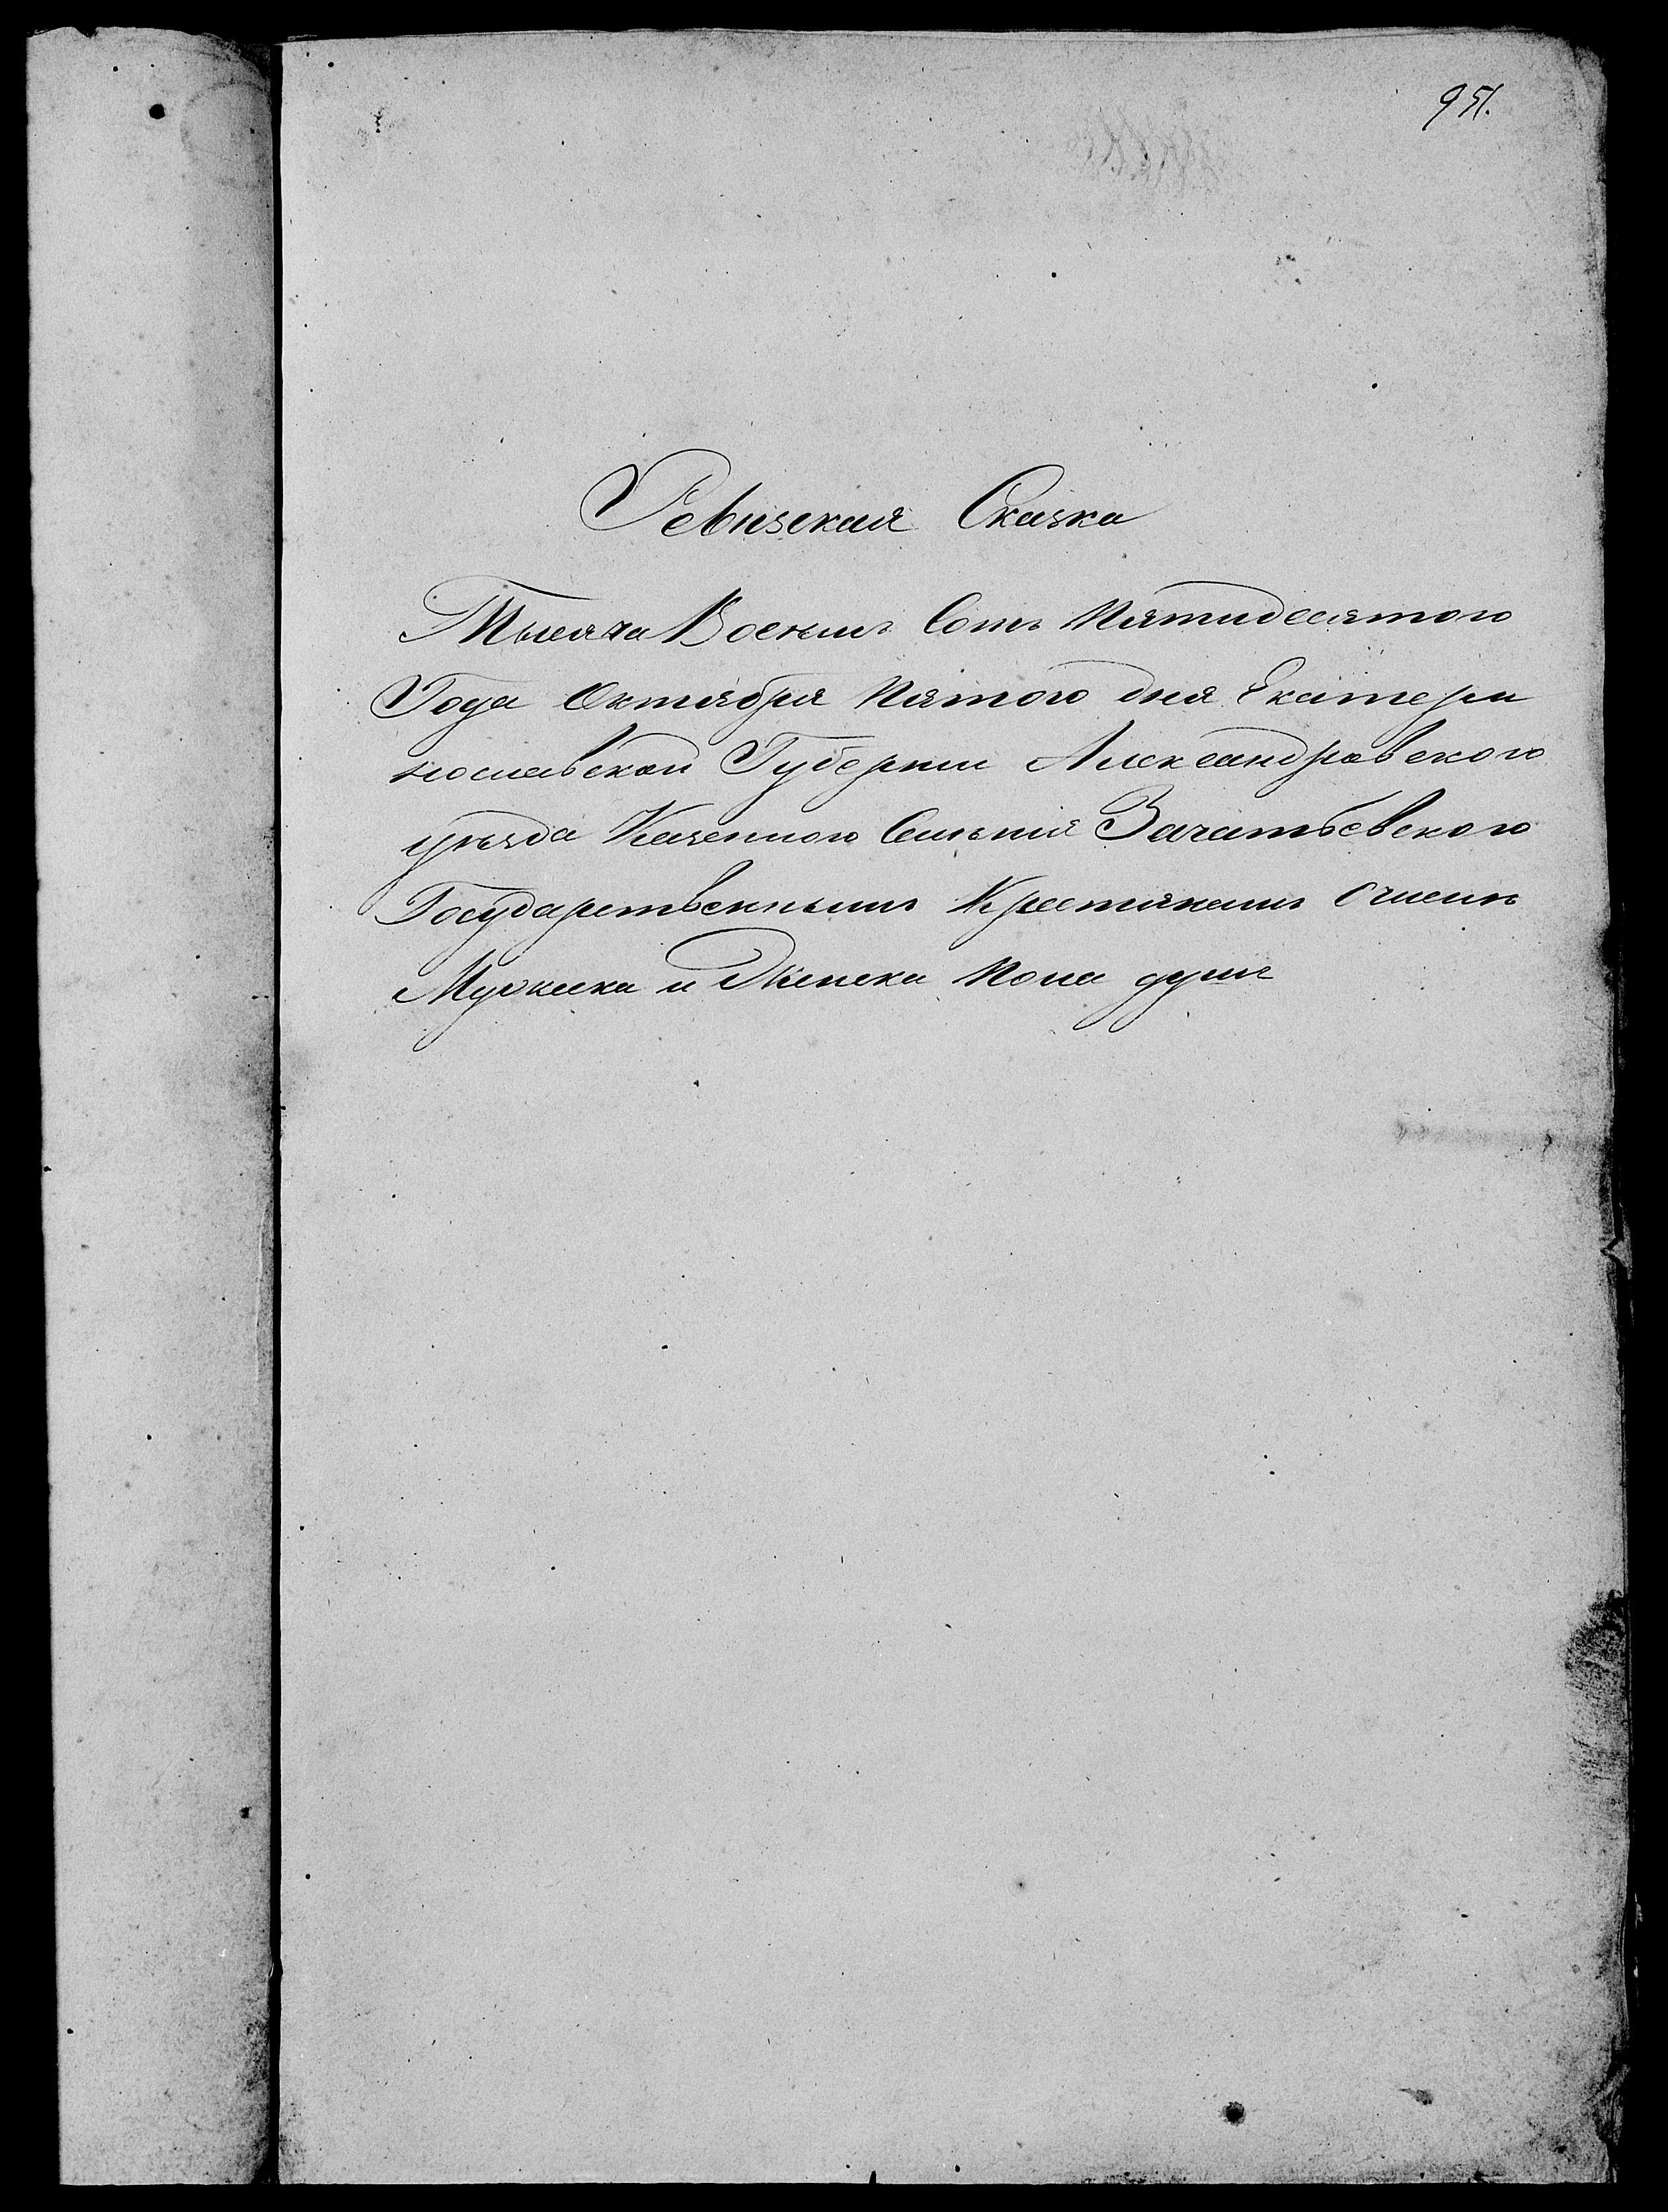 951.
Ревизская Сказка
Тысяча Восемь Сотъ Пятидесятого
Года Октября Пятого дня Екатери
нославской Губернии Александровского
уѣзда Казенного Селѣния Зачатьевского
Государственнымъ Крестянамъ Очислѣ
Мужеска и Женска Пола душъ